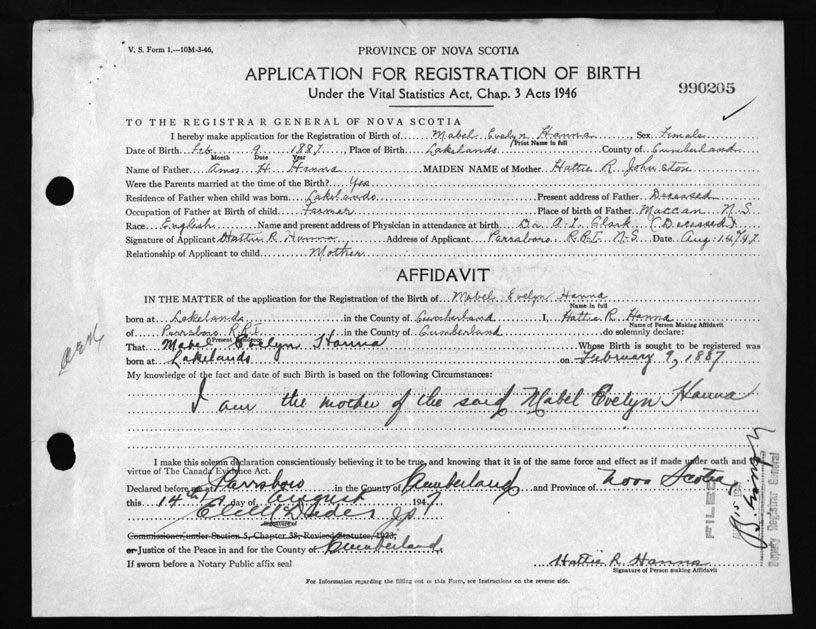 V. S. Form 1.—10M-3-46.
PROVINCE OF NOVA SCOTIA
APPLICATION FOR REGISTRATION OF BIRTH
990205
Under the Vital Statistics Act, Chap. 3 Acts 1946
TO THE REGISTRAR GENERAL OF NOVA SCOTIA
I hereby make application for the Registration of Birth of Mabel Evelyn Hanna, Sex Female
Print Name in full
Date of Birth Feb 9 1887, Place of Birth Lakelands County of Cumberland
Month Date Year
Name of Father Amos H. Hanna MAIDEN NAME of Mother Hattie R. Johnston
Were the Parents married at the time of the Birth? Yes
Residence of Father when child was born Lakelands Present address of Father Deceased
Occupation of Father at Birth of child Farmer Place of birth of Father Maccan N.S
Race English Name and present address of Physician in attendance at birth Dr A. I. Clark (Deceased)
Signature of Applicant Hattie R. Hanna Address of Applicant Parrsboro R.R.1. N.S. Date Aug. 14/47
Relationship of Applicant to child Mother
AFFIDAVIT
IN THE MATTER of the application for the Registration of the Birth of Mabel Evelyn Hanna
Name in full
born at Lakelands in the County of Cumberland I, Hattie R. Hanna
Name of Person Making Affidavit
of Parrsboro R.R.1. in the County of Cumberland do solemnly declare:
Present Residence
That Mabel Evelyn Hanna Whose Birth is sought to be registered was
born at Lakelands on February 9, 1887
My knowledge of the fact and date of such Birth is based on the following Circumstances:
I am the mother of the said Mabel Evelyn Hanna
I make this solemn declaration conscientiously believing it to be true, and knowing that it is of the same force and effect as if made under oath and by
virtue of The Canada Evidence Act.
Declared before me at Parrsboro in the County of Cumberland and Province of Nova Scotia
this 14th day of August 1947
Signature of
Commissioner under Section 5, Chapter 38, Revised Statutes, 1923,
or Justice of the Peace in and for the County of Cumberland
If sworn before a Notary Public affix seal.
Hattie R. Hanna
Signature of Person making Affidavit
For Information regarding the filling out of this Form, see Instructions on the reverse side.
FILED
Deputy Registrar General